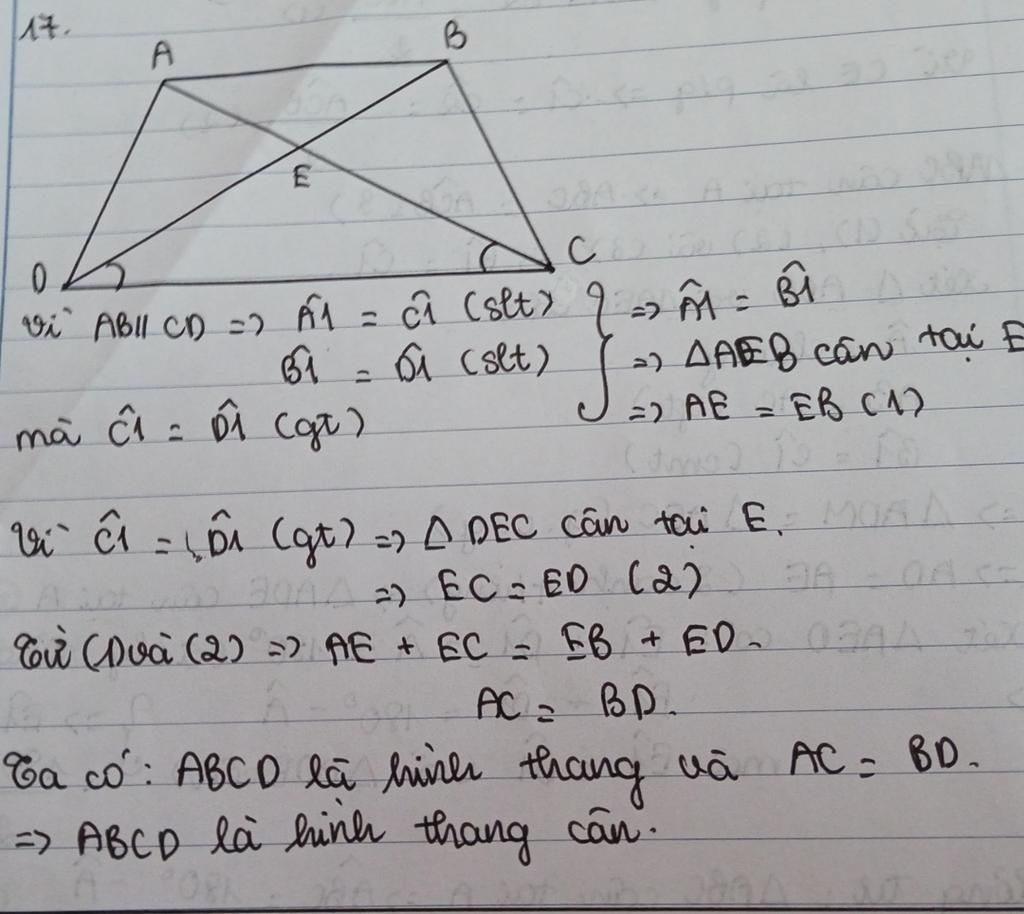 17.
A
B
E
D
C
Vì AB // CD => Â1 = Ĉ1 (slt)
B̂1 = D̂1 (slt)
mà Ĉ1 = D̂1 (gt)
=> Â1 = B̂1
=> ΔAEB cân tại E
=> AE = EB (1)
Vì Ĉ1 = D̂1 (gt) => Δ DEC cân tại E.
=> EC = ED (2)
Từ (1) và (2) => AE + EC = EB + ED.
AC = BD.
Ta có: ABCD là hình thang và AC = BD.
=> ABCD là hình thang cân.